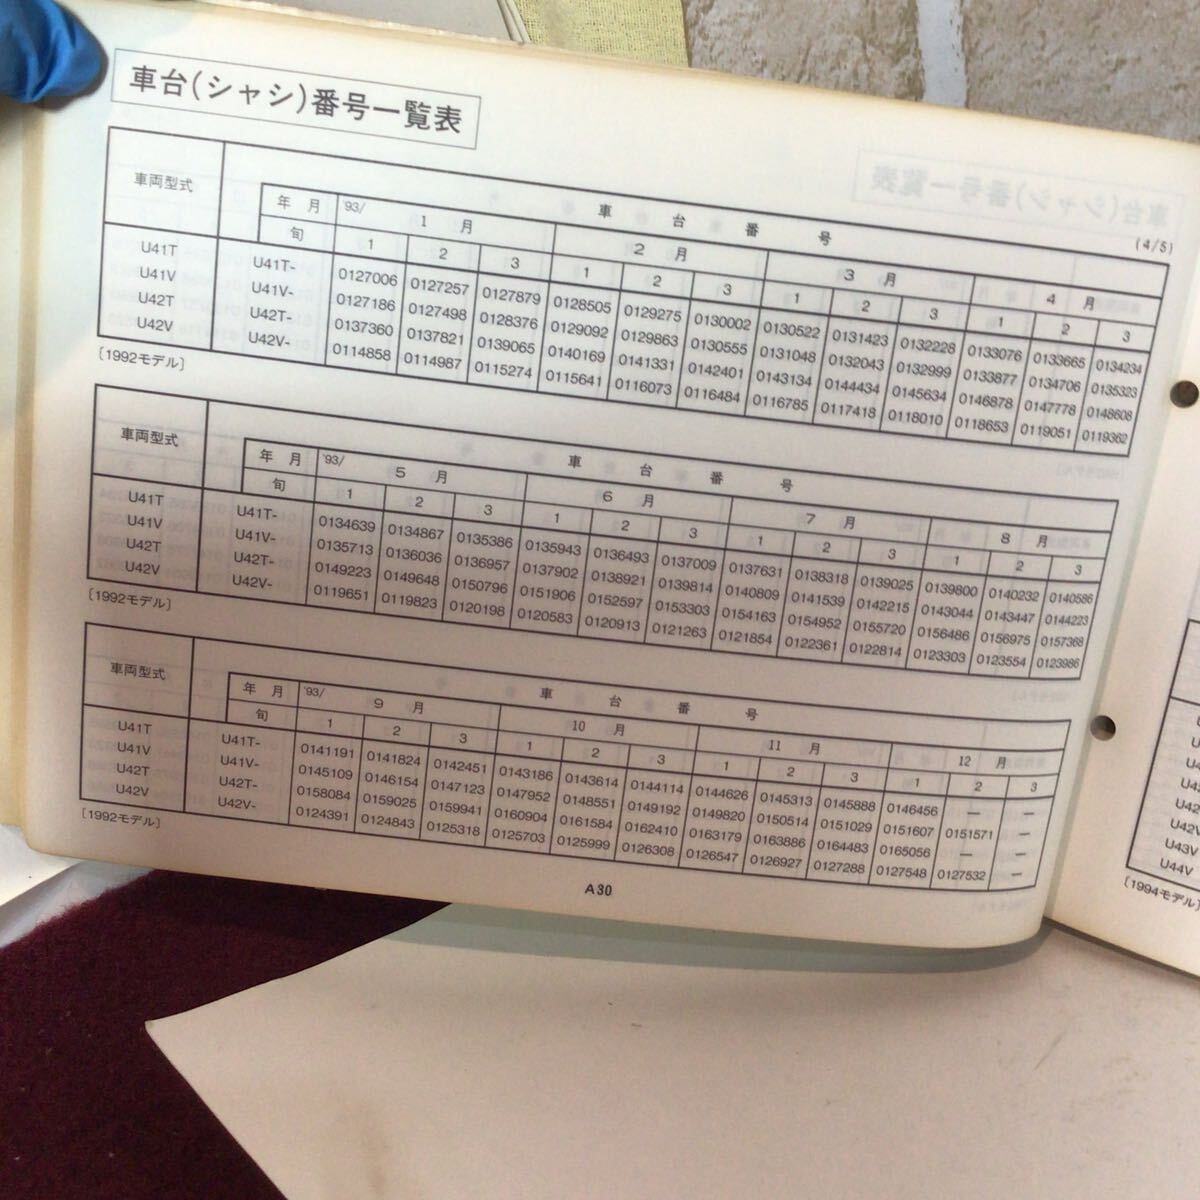 車台(シャシ)番号一覧表
(4/5)
車両型式 車台番号
年月 '93/ 1月 2月 3月 4月
旬 1 2 3 1 2 3 1 2 3 1 2 3
U41T U41T- 0127006 0127257 0127879 0128505 0129275 0130002 0130522 0131423 0132228 0133076 0133665 0134234
U41V U41V- 0127186 0127498 0128376 0129092 0129863 0130555 0131048 0132043 0132999 0133877 0134706 0135323
U42T U42T- 0137360 0137821 0139065 0140169 0141331 0142401 0143134 0144434 0145634 0146878 0147778 0148608
U42V U42V- 0114858 0114987 0115274 0115641 0116073 0116484 0116785 0117418 0118010 0118653 0119051 0119362
〔1992モデル〕
車両型式 車台番号
年月 '93/ 5月 6月 7月 8月
旬 1 2 3 1 2 3 1 2 3 1 2 3
U41T U41T- 0134639 0134867 0135386 0135943 0136493 0137009 0137631 0138318 0139025 0139800 0140232 0140586
U41V U41V- 0135713 0136036 0136957 0137902 0138921 0139814 0140809 0141539 0142215 0143044 0143447 0144223
U42T U42T- 0149223 0149648 0150796 0151906 0152597 0153303 0154163 0154952 0155720 0156486 0156975 0157368
U42V U42V- 0119651 0119823 0120198 0120583 0120913 0121263 0121854 0122361 0122814 0123303 0123554 0123986
〔1992モデル〕
車両型式 車台番号
年月 '93/ 9月 10月 11月 12月
旬 1 2 3 1 2 3 1 2 3 1 2 3
U41T U41T- 0141191 0141824 0142451 0143186 0143614 0144114 0144626 0145313 0145888 0146456 ー ー
U41V U41V- 0145109 0146154 0147123 0147952 0148551 0149192 0149820 0150514 0151029 0151607 0151571 ー
U42T U42T- 0158084 0159025 0159941 0160904 0161584 0162410 0163179 0163886 0164483 0165056 ー ー
U42V U42V- 0124391 0124843 0125318 0125703 0125999 0126308 0126547 0126927 0127288 0127548 0127532 ー
〔1992モデル〕
A30
U43V
U44V
〔1994モデル〕